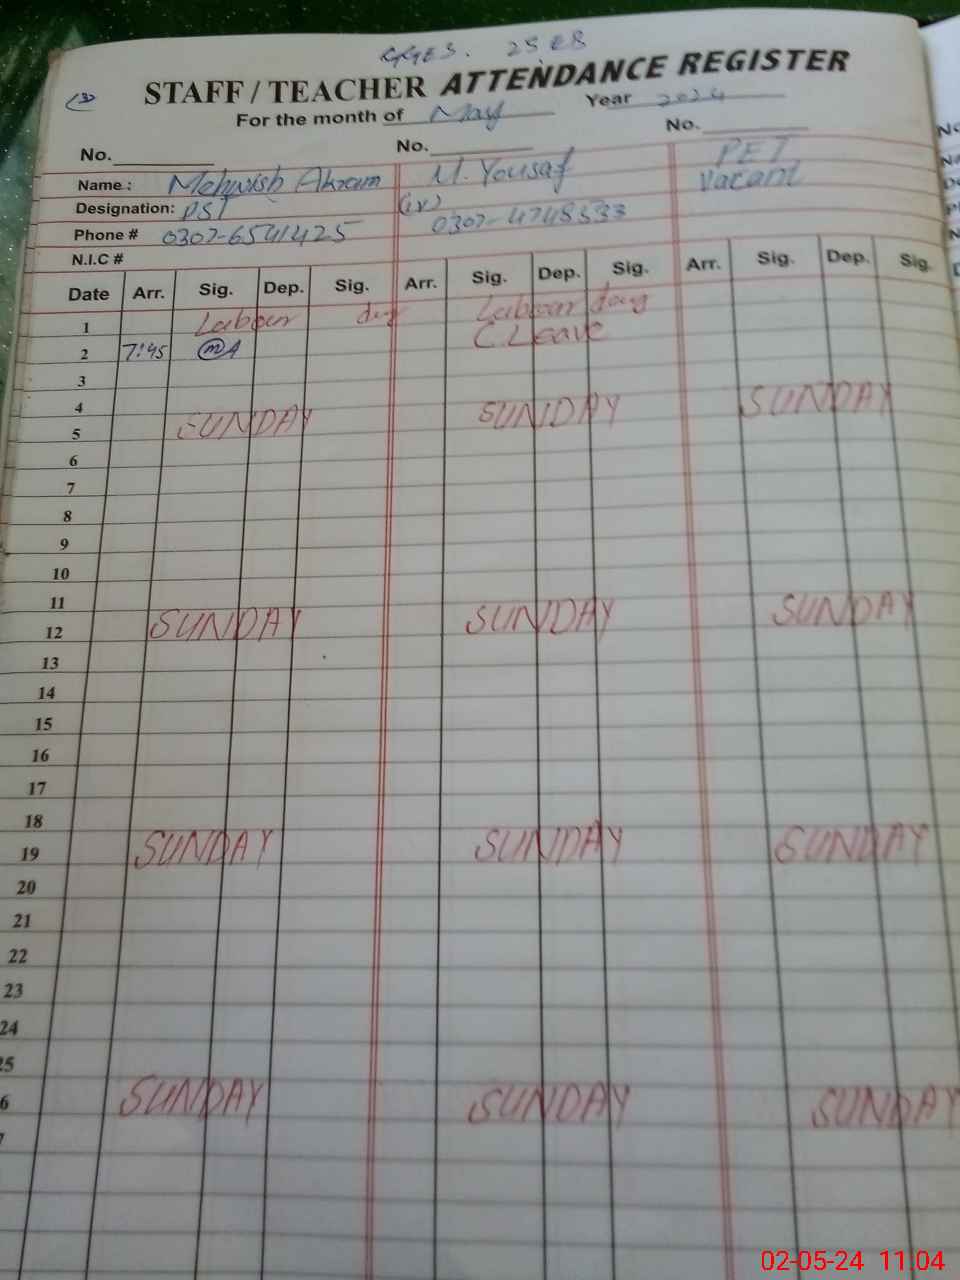 GGES. 25 EB
STAFF / TEACHER ATTENDANCE REGISTER
For the month of May Year 2024
No. No. No.
Name : Mehwish Akram M. Yousaf PET
Designation: PST (IV) Vacant
Phone # 0307-6541425 0307-4748533
N.I.C #
Date Arr. Sig. Dep. Sig. Arr. Sig. Dep. Sig. Arr. Sig. Dep. Sig.
1 Labour day Labour day
2 7:45 MA C.Leave
3
4
5 SUNDAY SUNDAY SUNDAY
6
7
8
9
10
11
12 SUNDAY SUNDAY SUNDAY
13
14
15
16
17
18
19 SUNDAY SUNDAY SUNDAY
20
21
22
23
24
25
6 SUNDAY SUNDAY SUNDAY
7
02-05-24 11:04